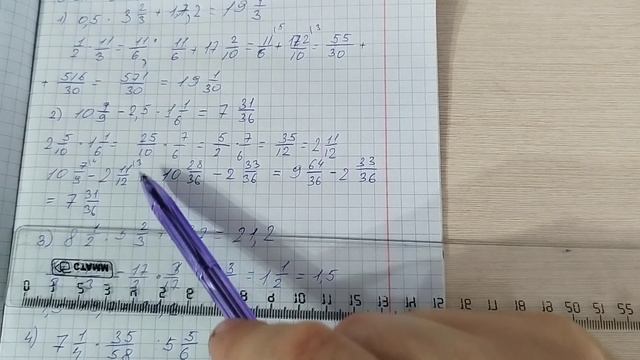 1) 0,5 · 3 2/3 + 17,2 = 19 1/3
1/2 · 11/3 = 11/6; 11/6 + 17 2/10 = 11/6 + 172/10 = 55/30 +
+ 516/30 = 571/30 = 19 1/30
2) 10 7/9 - 2,5 · 1 1/6 = 7 31/36
2 5/10 · 1 1/6 = 25/10 · 7/6 = 5/2 · 7/6 = 35/12 = 2 11/12
10 7/9 - 2 11/12 = 10 28/36 - 2 33/36 = 9 64/36 - 2 33/36
= 7 31/36
3) 8 1/2 · 5 2/3 + = 21,2
СТАММ
= 17/2 · 3/17 = 1 1/2 = 1,5
0 1 2 3 4 5 6 7 8 9 10 11 12 13 14 15
4) 7 1/4 · 35/58 · 5 5/6